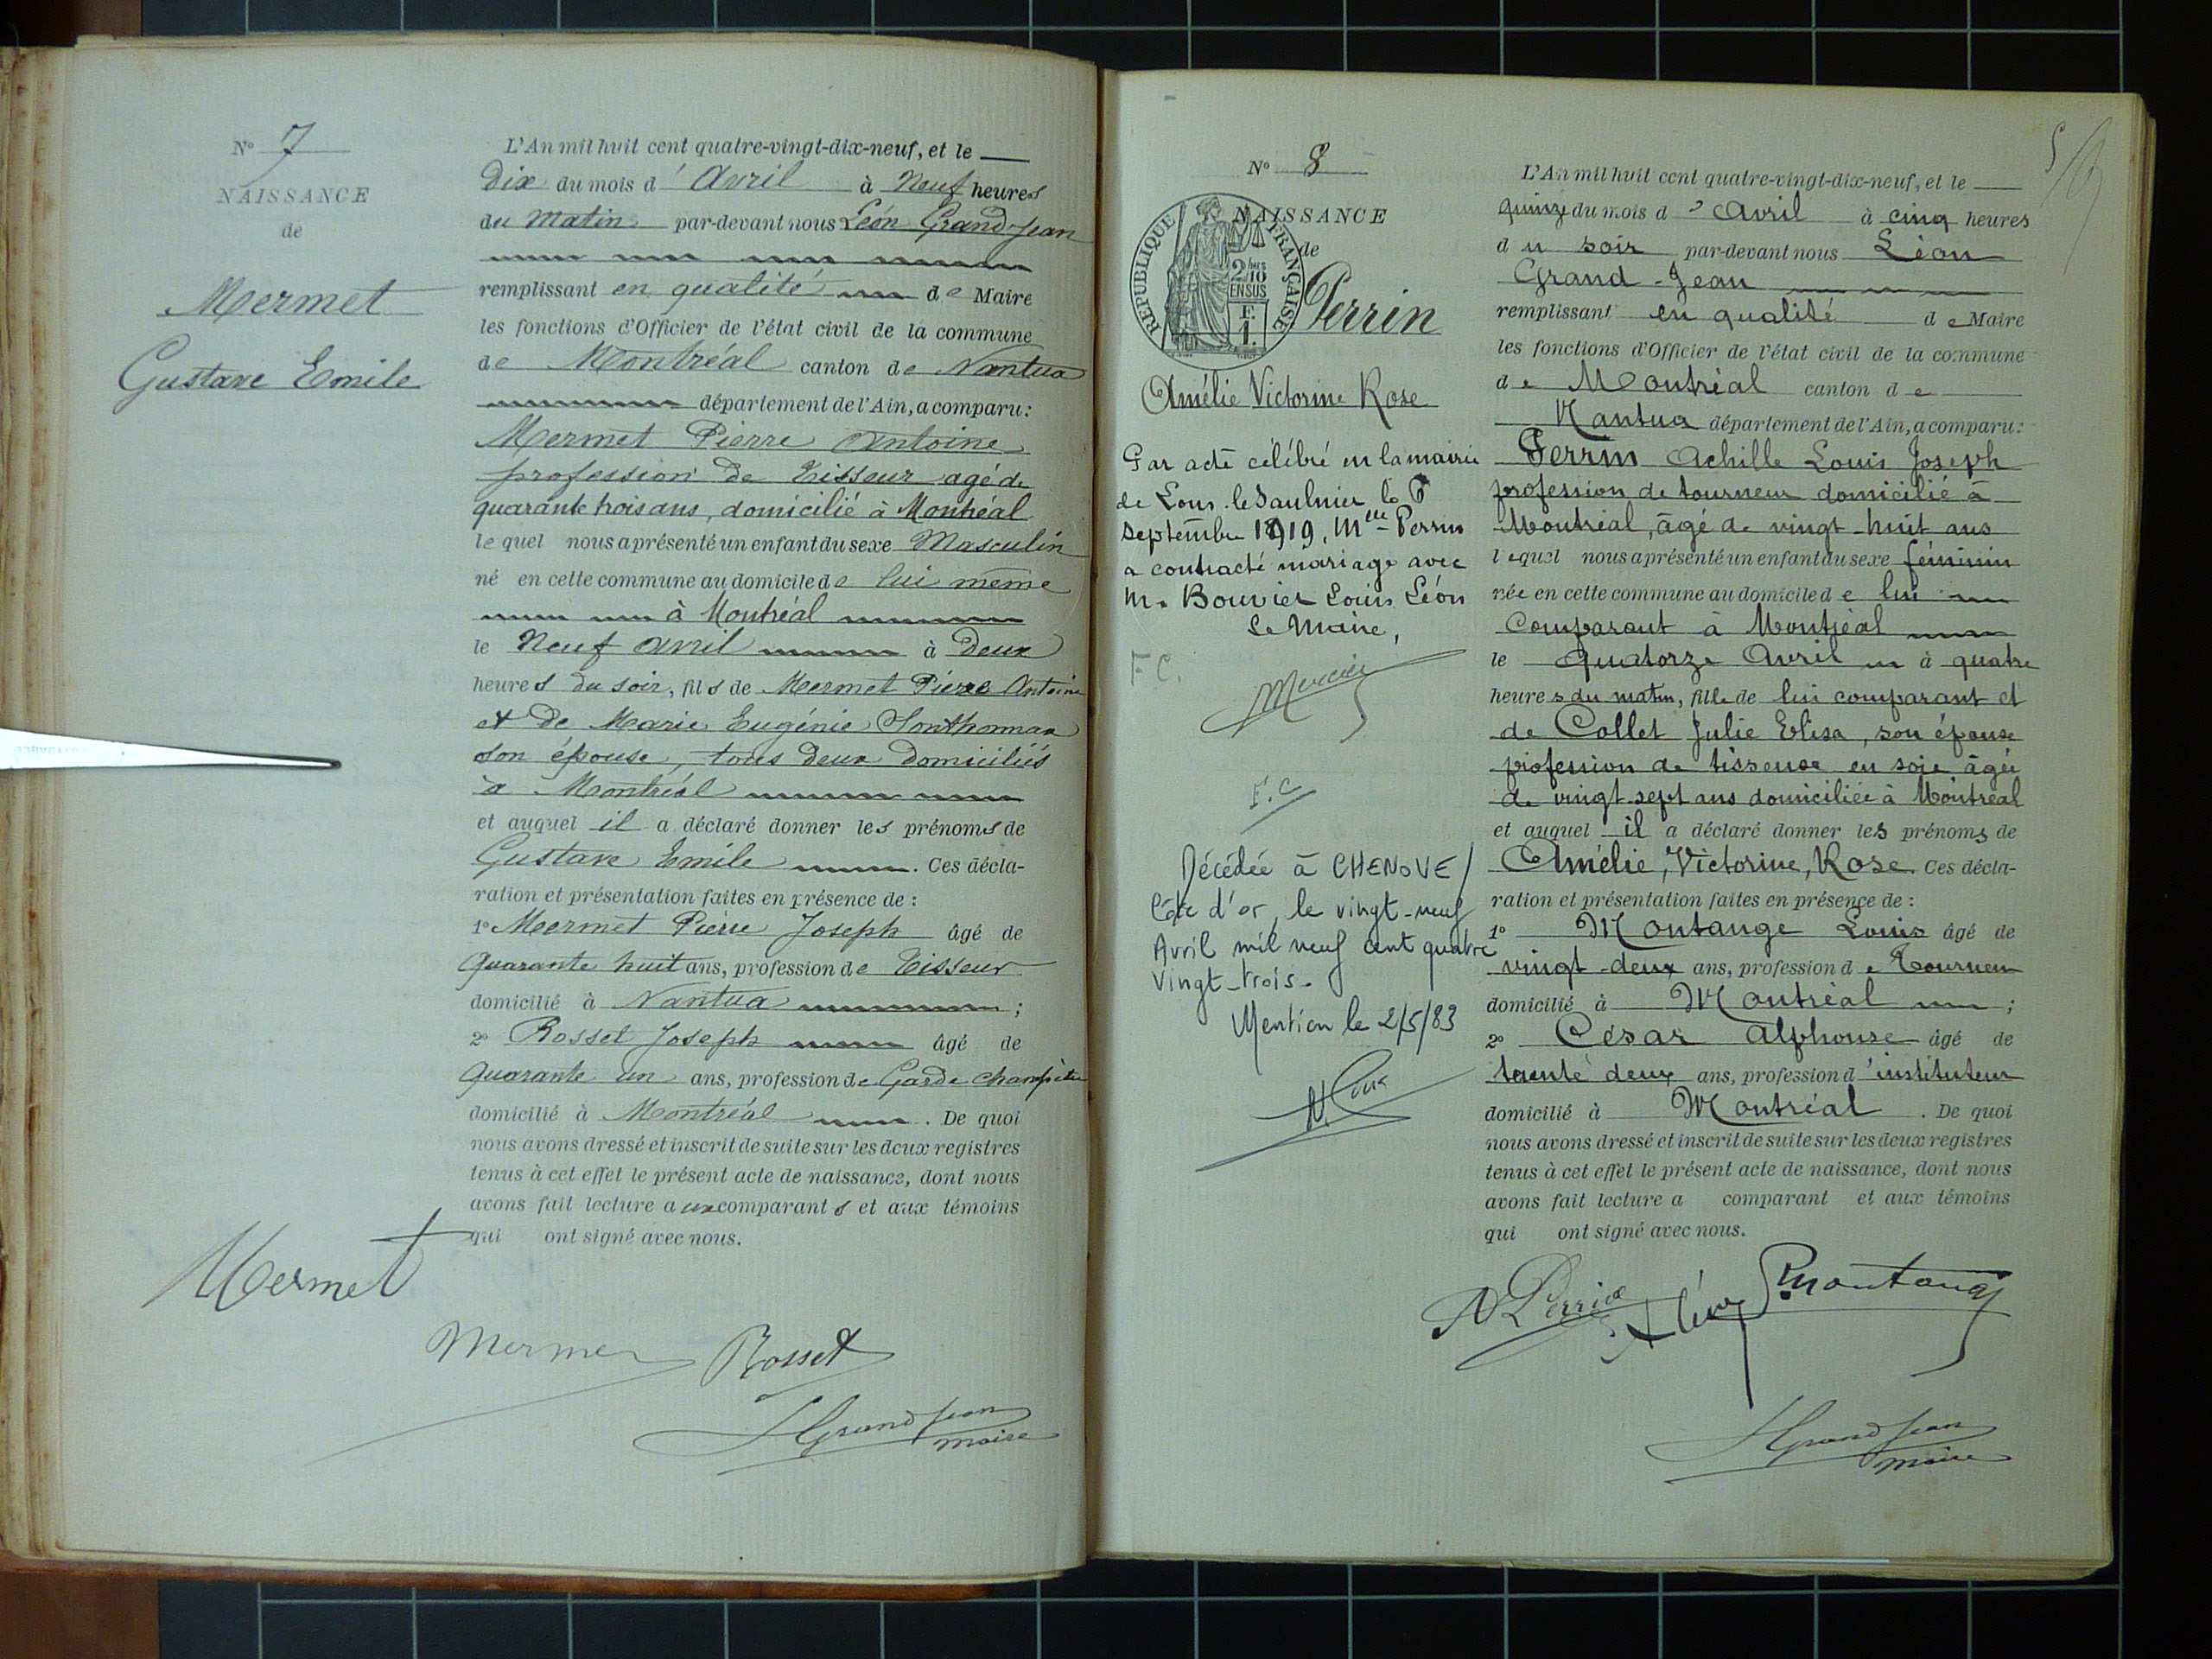 N° 7
NAISSANCE
de
Mermet
Gustave Emile
L'An mil huit cent quatre-vingt-dix-neuf, et le
Dix du mois d' Avril à Neuf heures
du Matin par-devant nous Léon Grand-Jean
remplissant en qualité de Maire
les fonctions d'Officier de l'état civil de la commune
de Montréal canton de Nantua
département de l'Ain, a comparu:
Mermet Pierre Antoine
profession de Tisseur agé de
quarante trois ans, domicilié à Montréal
le quel nous a présenté un enfant du sexe Masculin
né en cette commune au domicile de lui même
à Montréal
le Neuf avril à Deux
heures du soir, fils de Mermet Pierre Antoine
et de Marie Eugénie Sonthonnax
son épouse, tous deux domiciliés
à Montréal
et auquel il a déclaré donner les prénoms de
Gustave Emile. Ces décla-
ration et présentation faites en présence de :
1° Mermet Pierre Joseph âgé de
Quarante huit ans, profession de Tisseur
domicilié à Nantua ;
2° Rosset Joseph âgé de
Quarante un ans, profession de Garde champêtre
domicilié à Montréal . De quoi
nous avons dressé et inscrit de suite sur les deux registres
tenus à cet effet le présent acte de naissance, dont nous
avons fait lecture aux comparants et aux témoins
qui ont signé avec nous.
Mermet
Mermet Rosset
LGrandJean
maire
5
N° 8
NAISSANCE
de
RÉPUBLIQUE FRANÇAISE
2/10 EN SUS
F. 1.
Perrin
Amélie Victorine Rose
Par acte célébré en la mairie
de Lons-le-Saulnier le 6
septembre 1919, Mlle Perrin
a contracté mariage avec
M. Bouvier Louis Léon
Le Maire,
F.C.
Mercier
F.C
Décédée à CHENOVE /
Côte d'or, le vingt-neuf
Avril mil neuf cent quatre
vingt-trois.
Mention le 2/5/83
L'An mil huit cent quatre-vingt-dix-neuf, et le
quinze du mois d' Avril à cinq heures
du soir par-devant nous Léon
Grand-Jean
remplissant en qualité de Maire
les fonctions d'Officier de l'état civil de la commune
de Montréal canton de
Nantua département de l'Ain, a comparu:
Perrin Achille Louis Joseph
profession de tourneur domicilié à
Montréal, âgé de vingt-huit ans
lequel nous a présenté un enfant du sexe féminin
née en cette commune au domicile de lui
Comparant à Montréal
le quatorze Avril à quatre
heures du matin, fille de lui comparant et
de Collet Julie Elisa, son épouse
profession de tisseuse en soie âgée
de vingt-sept ans domiciliée à Montréal
et auquel il a déclaré donner les prénoms de
Amélie, Victorine, Rose. Ces décla-
ration et présentation faites en présence de :
1° Montange Louis âgé de
vingt-deux ans, profession de Tourneur
domicilié à Montréal ;
2° César Alphonse âgé de
trente deux ans, profession d'instituteur
domicilié à Montréal . De quoi
nous avons dressé et inscrit de suite sur les deux registres
tenus à cet effet le présent acte de naissance, dont nous
avons fait lecture a comparant et aux témoins
qui ont signé avec nous.
Montange
LGrandJean
maire